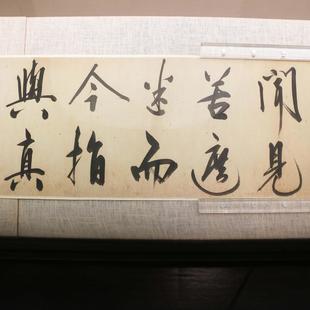 聞見
善應
迷而
今指
與真